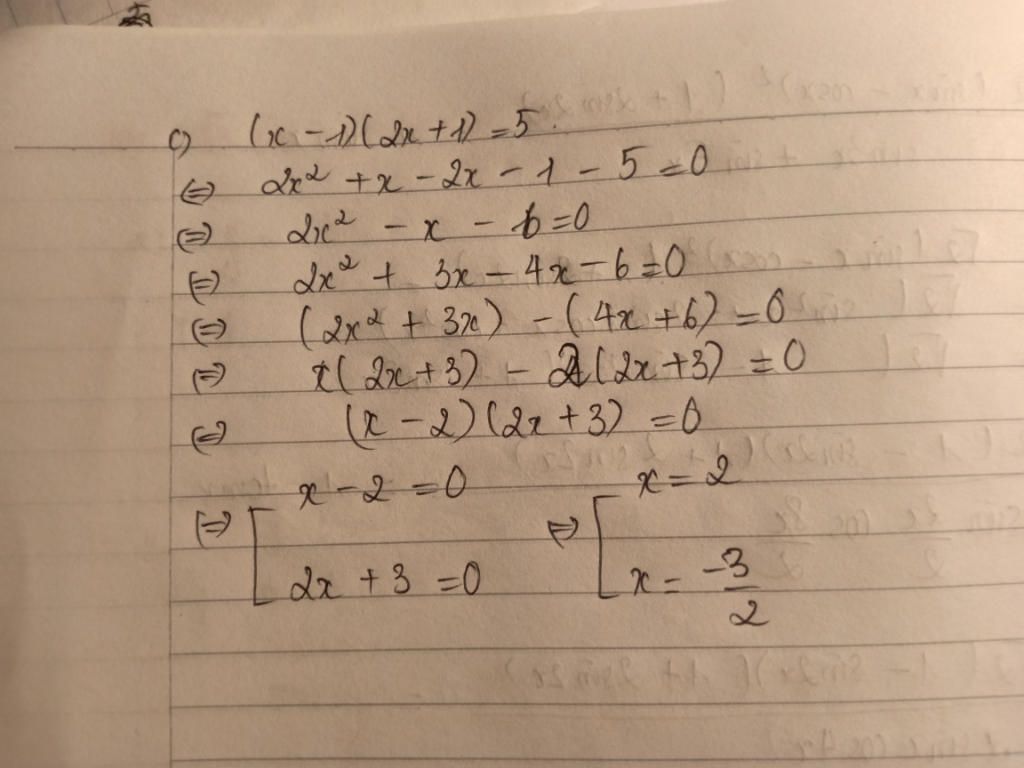 c) (x - 1)(2x + 1) = 5.
⇔ 2x² + x - 2x - 1 - 5 = 0
⇔ 2x² - x - 6 = 0
⇔ 2x² + 3x - 4x - 6 = 0
⇔ (2x² + 3x) - (4x + 6) = 0
⇔ x(2x + 3) - 2(2x + 3) = 0
⇔ (x - 2)(2x + 3) = 0
⇔ [ x - 2 = 0 ⇔ [ x = 2
2x + 3 = 0 x = -3/2